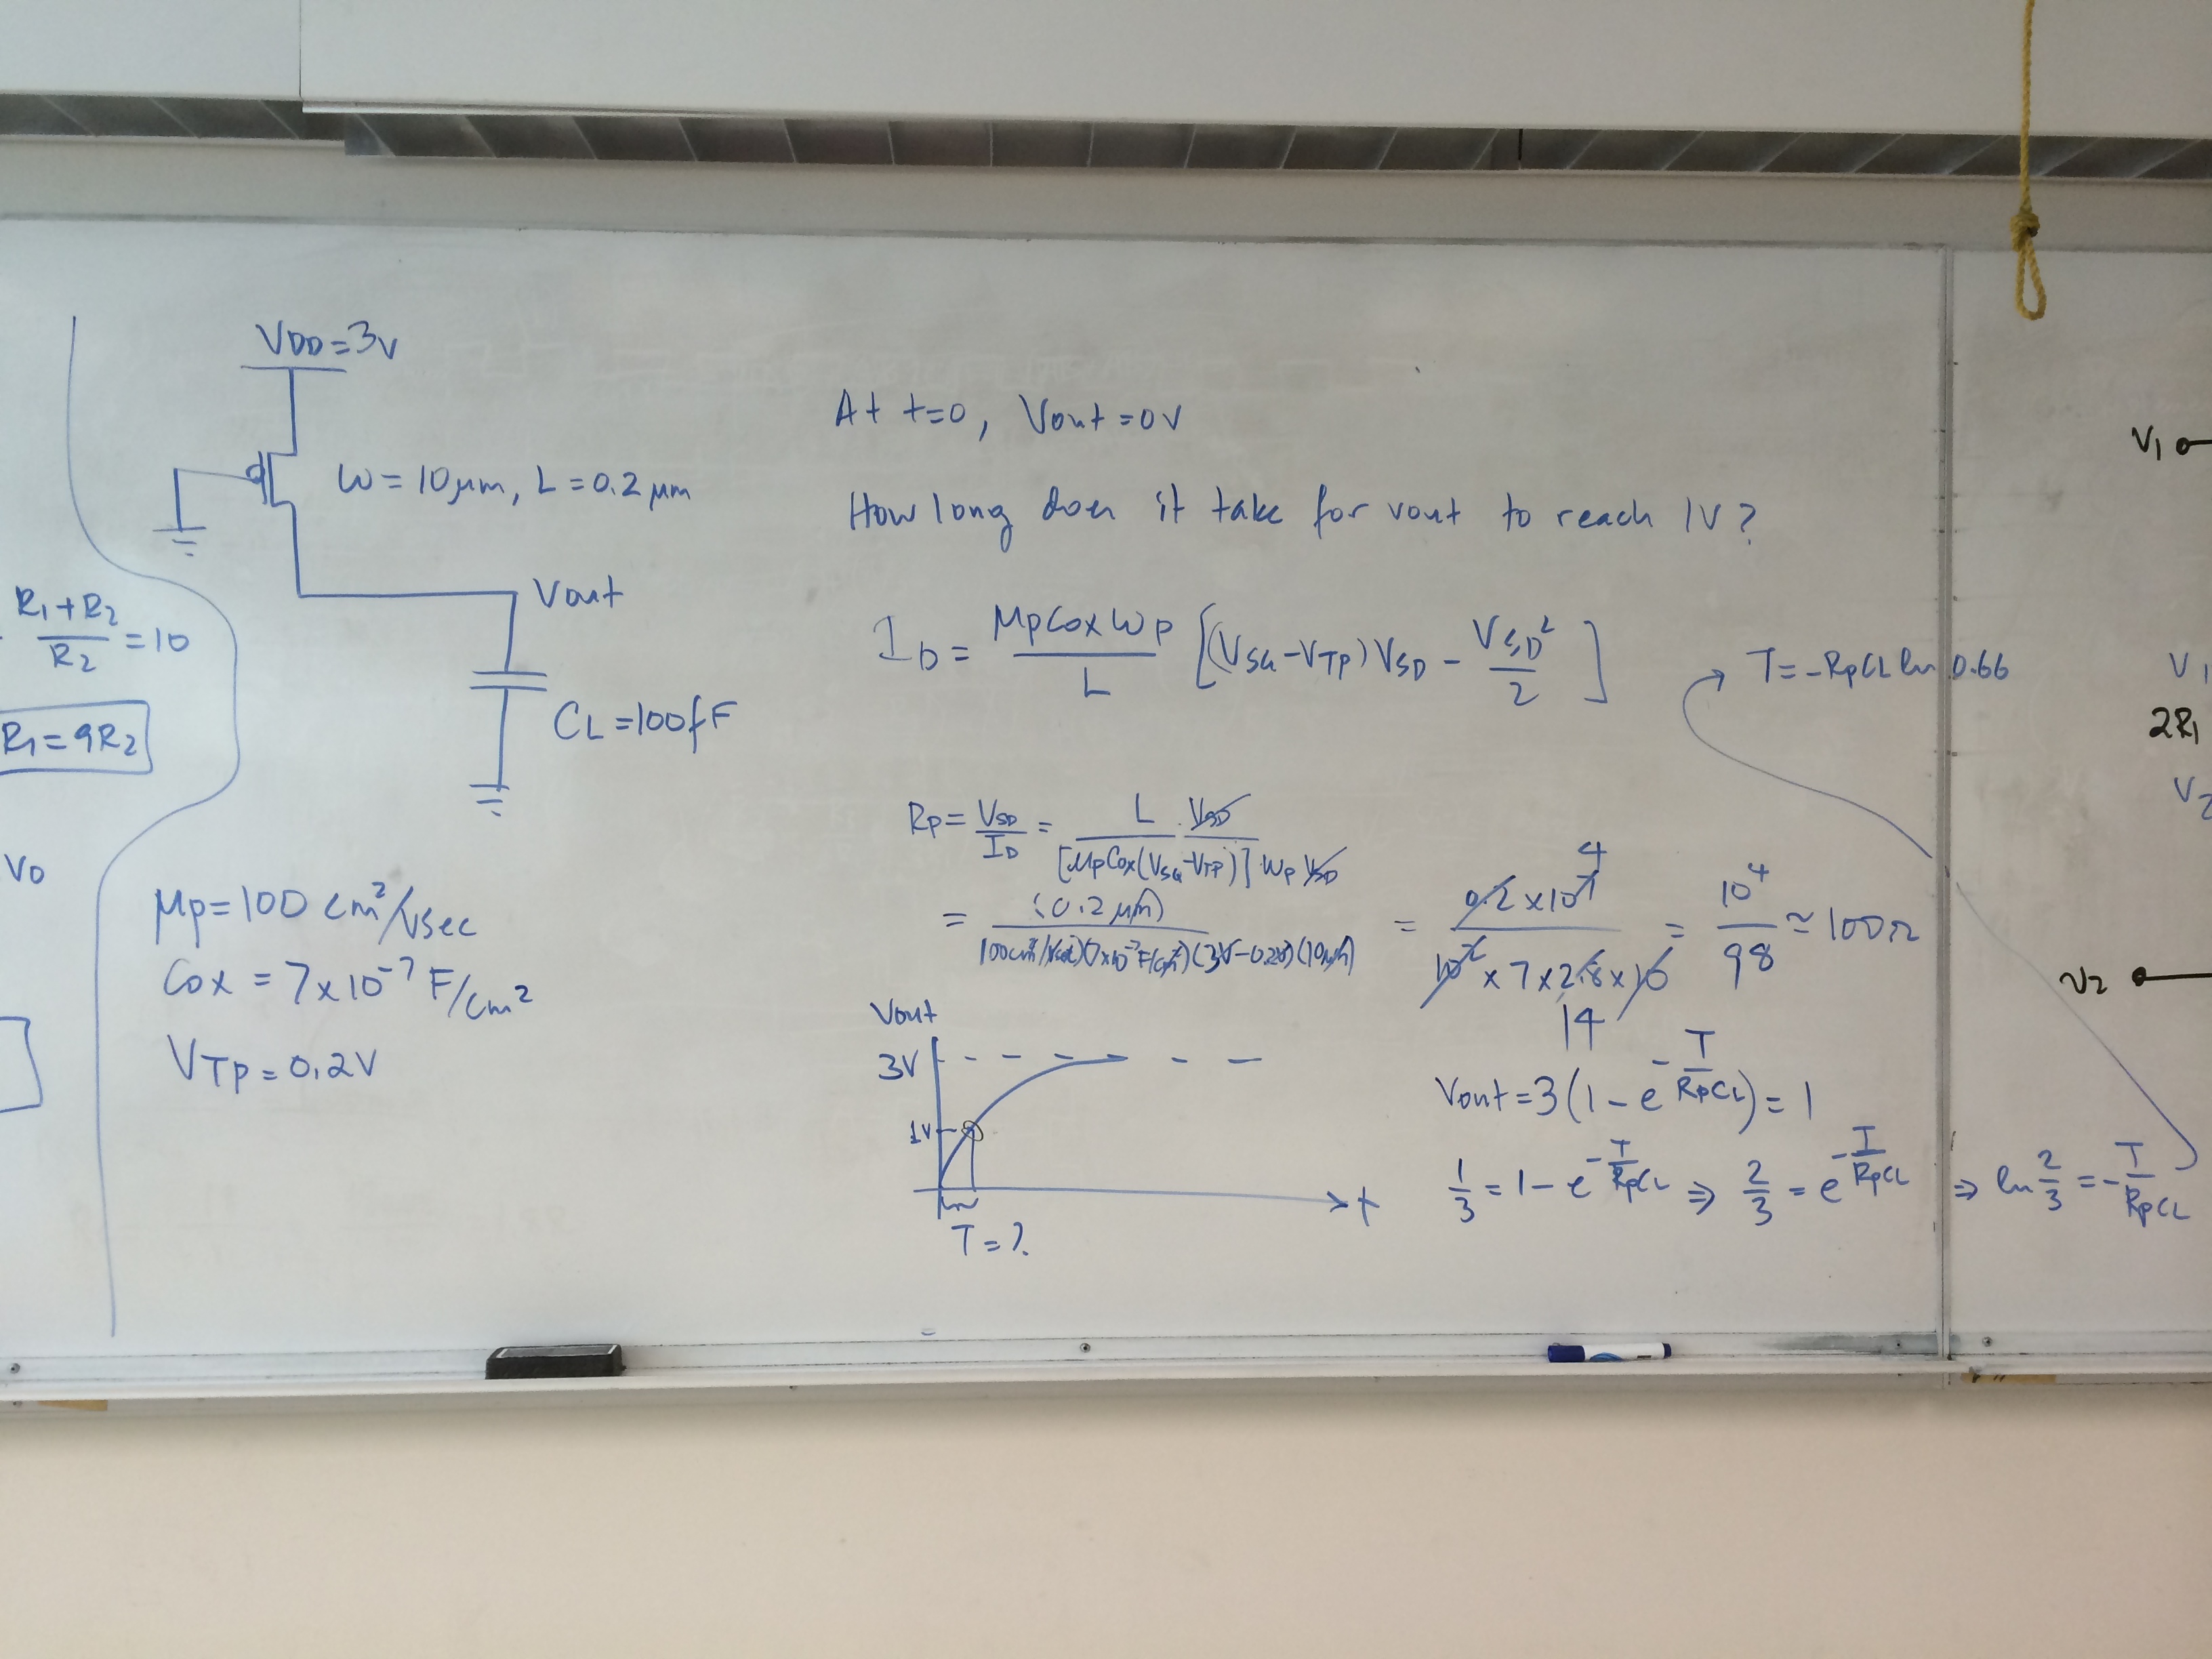 VDD=3V
W=10μm, L=0.2μm
Vout
CL=100fF
R1+R2/R2=10
R1=9R2
V0
μp=100 cm²/Vsec
Cox=7x10⁻⁷ F/cm²
VTp=0.2V
At t=0, Vout=0V
How long does it take for vout to reach 1V?
ID=μpCoxWp/L [(VSG-VTp)VSD-VSD²/2]
T=-RpCL ln 0.66
Rp=VSD/ID=L/[μpCox(VSG-VTp)]Wp · VSD/VSD
=(0.2μm)/(100cm²/Vsec)(7x10⁻⁷F/cm²)(3V-0.2V)(10μm) = 0.2x10⁷ 4/10²x7x2.8x10 14 = 10⁴/98 ≃ 100Ω
Vout
3V
1V
t
T=?
Vout=3(1-e^-T/RpCL)=1
1/3=1-e^-T/RpCL ⇒ 2/3=e^-T/RpCL ⇒ ln 2/3=-T/RpCL
V1
V1
2R1
V2
V2